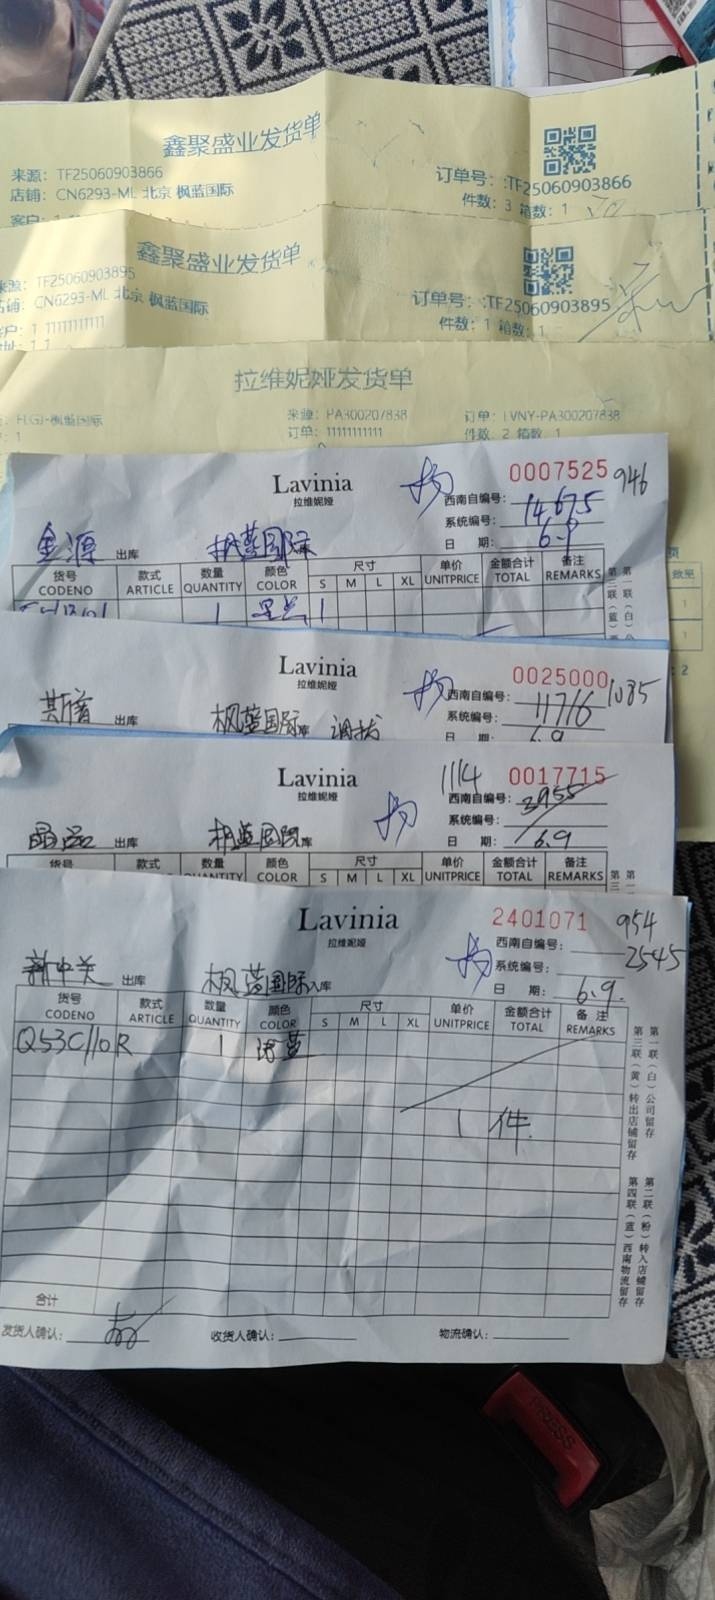 鑫聚盛业发货单
来源: TF25060903866
订单号: :TF25060903866
店铺: CN6293-ML 北京 枫蓝国际
件数: 3 箱数: 1
客户:
鑫聚盛业发货单
来源: TF25060903895
订单号: :TF25060903895
店铺: CN6293-ML 北京 枫蓝国际
件数: 1 箱数: 1
户: 1 11111111111
拉维妮娅发货单
枫蓝国际
来源: PA300207838
订单: LVNY-PA300207838
: 1
订单: 11111111111
件数: 2 箱数: 1
Lavinia
拉维妮娅
0007525
946
西南自编号:
14675
系统编号:
日 期:
6.9
金源 出库 枫蓝国际
货号 款式 数量 颜色 尺寸 单价 金额合计 备注
CODENO ARTICLE QUANTITY COLOR S M L XL UNITPRICE TOTAL REMARKS
1 1
Lavinia
拉维妮娅
0025000
1085
西南自编号:
11716
系统编号:
日 期:
6.9
出库 枫蓝国际库 调拨
Lavinia
拉维妮娅
1114
0017715
西南自编号:
3955
系统编号:
日 期:
6.9
晶品 出库 枫蓝国际库
货号 款式 数量 颜色 尺寸 单价 金额合计 备注
QUANTITY COLOR S M L XL UNITPRICE TOTAL REMARKS
Lavinia
拉维妮娅
2401071
954
西南自编号:
2545
系统编号:
日 期:
6.9.
新中关 出库 枫蓝国际入库
货号 款式 数量 颜色 尺寸 单价 金额合计 备注
CODENO ARTICLE QUANTITY COLOR S M L XL UNITPRICE TOTAL REMARKS
Q53C110R 1 蓝
1件.
合计
发货人确认: 收货人确认: 物流确认:
第一联(白)公司留存
第二联(粉)转入店铺留存
第三联(黄)转出店铺留存
第四联(蓝)西南物流留存
PRESS